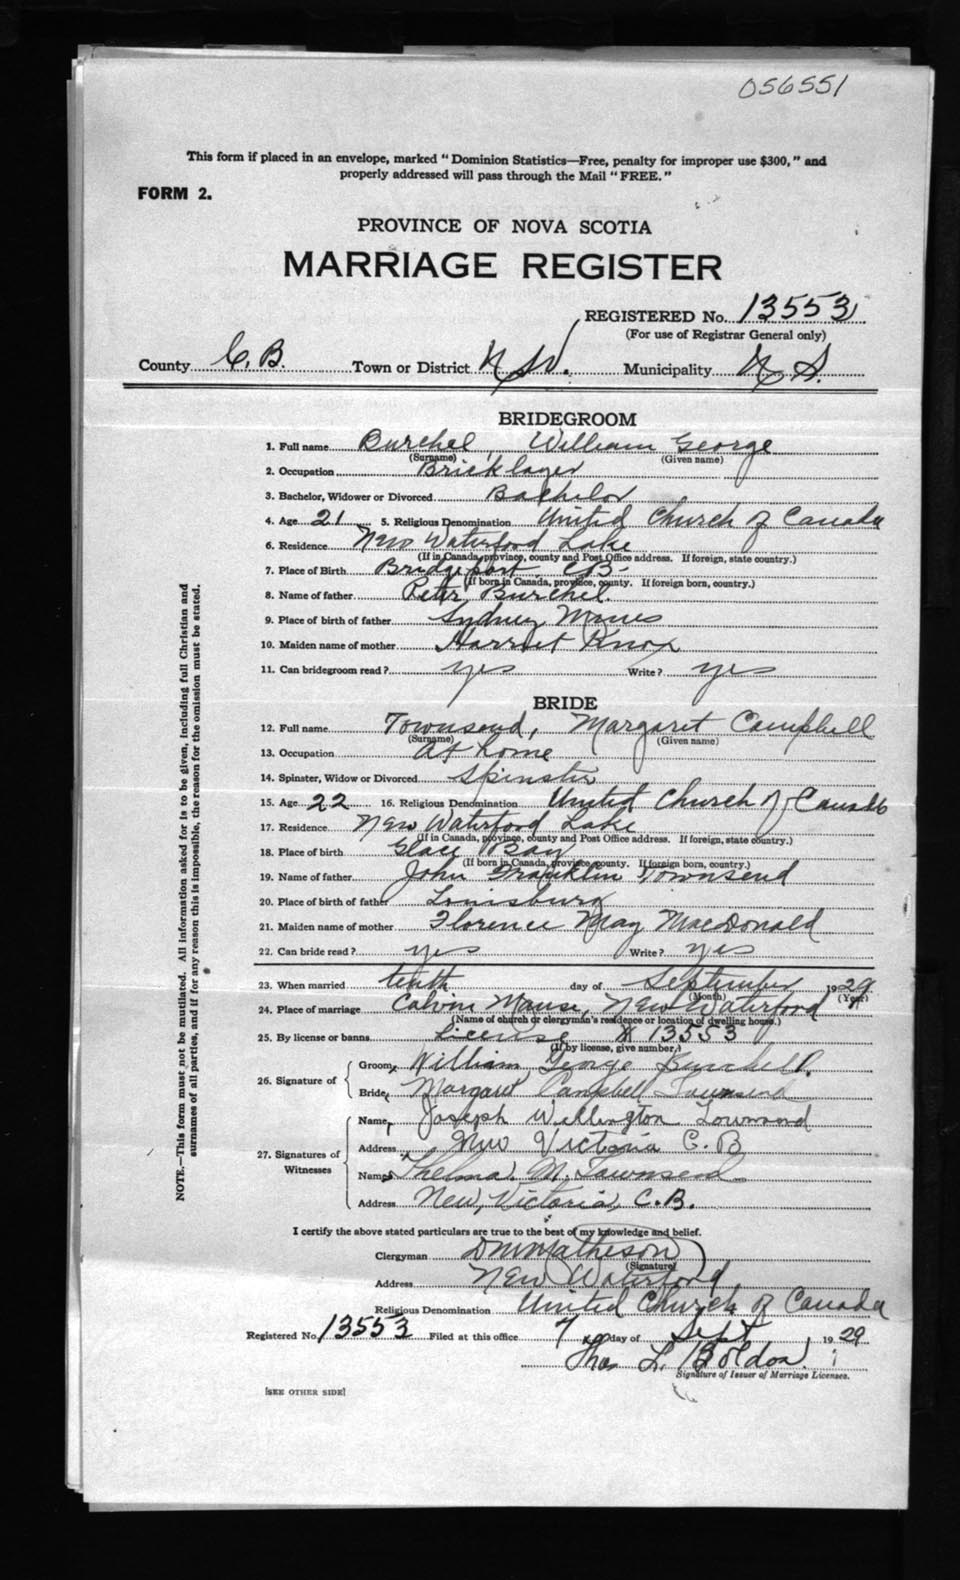 056551
This form if placed in an envelope, marked "Dominion Statistics—Free, penalty for improper use $300," and
properly addressed will pass through the Mail "FREE."
FORM 2.
PROVINCE OF NOVA SCOTIA
MARRIAGE REGISTER
REGISTERED No. 13553
(For use of Registrar General only)
County C.B. Town or District N.W. Municipality N.S.
BRIDEGROOM
1. Full name Burchel, William George
(Surname) (Given name)
2. Occupation Bricklayer
3. Bachelor, Widower or Divorced Bachelor
4. Age 21 5. Religious Denomination United Church of Canada
6. Residence New Waterford Lake
(If in Canada, province, county and Post Office address. If foreign, state country.)
7. Place of Birth Bridgeport C.B.
(If born in Canada, province, county. If foreign born, country.)
8. Name of father Peter Burchel
9. Place of birth of father Sydney Mines
10. Maiden name of mother Harriet Knox
11. Can bridegroom read? yes Write? yes
BRIDE
12. Full name Townsend, Margaret Campbell
(Surname) (Given name)
13. Occupation At home
14. Spinster, Widow or Divorced Spinster
15. Age 22 16. Religious Denomination United Church of Canada
17. Residence New Waterford Lake
(If in Canada, province, county and Post Office address. If foreign, state country.)
18. Place of birth Glace Bay
(If born in Canada, province, county. If foreign born, country.)
19. Name of father John Franklin Townsend
20. Place of birth of father Louisburg
21. Maiden name of mother Florence May MacDonald
22. Can bride read? yes Write? yes
23. When married tenth day of September 1929
(Month) (Year)
24. Place of marriage Calvin Manse, New Waterford
(Name of church or clergyman's residence or location of dwelling house.)
25. By license or banns License # 13553
(If by license, give number.)
26. Signature of
Groom William George Burchell.
Bride Margaret Campbell Townsend
27. Signatures of Witnesses
Name Joseph Wellington Townsend
Address New Victoria C.B
Name Thelma M. Townsend
Address New Victoria C.B.
I certify the above stated particulars are true to the best of my knowledge and belief.
Clergyman D M Matheson
(Signature)
Address New Waterford
Religious Denomination United Church of Canada
Registered No. 13553 Filed at this office 7 day of Sept 1929
Thos L. Boldon
Signature of Issuer of Marriage Licenses.
[SEE OTHER SIDE]
NOTE.—This form must not be mutilated. All information asked for is to be given, including full Christian and
surnames of all parties, and if for any reason this is impossible, the reason for the omission must be stated.